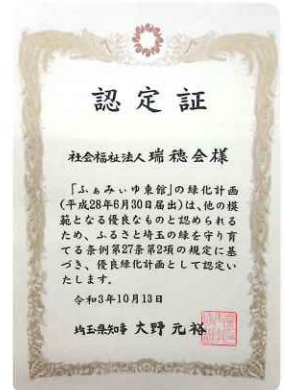 認定証
社会福祉法人 瑞穂会様
「ふぁみぃゆ東館」の緑化計画
(平成28年6月30日届出)は、他の模
範となる優良なものと認められる
ため、ふるさと埼玉の緑を守り育
てる条例第27条第2項の規定に基
づき、優良緑化計画として認定い
たします。
令和3年10月13日
埼玉県知事 大野元裕